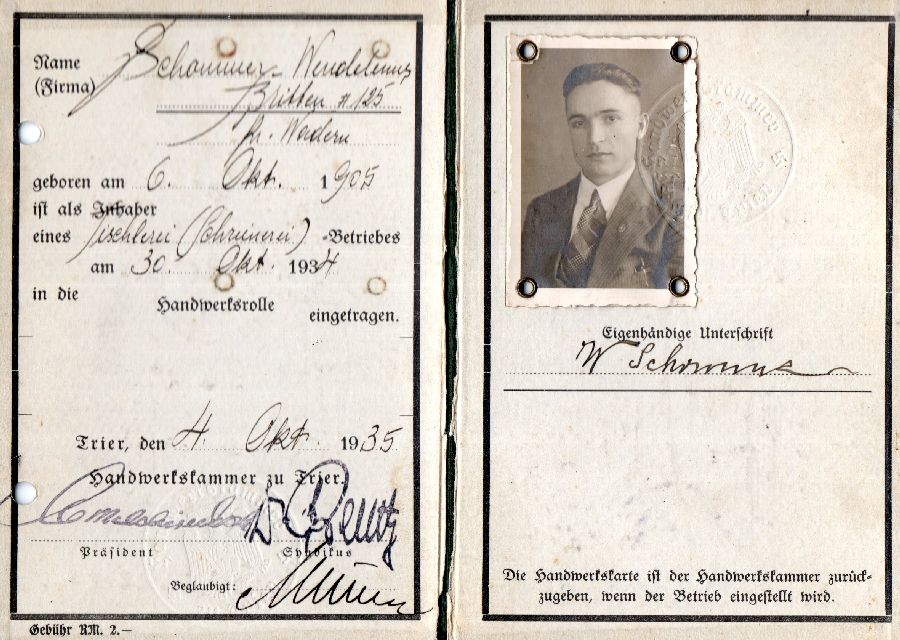 Name Schommer Wendelinus
(Firma) Britten # 125
Kr. Wadern
geboren am 6. Okt. 1905
ist als Inhaber
eines Tischlerei (Schreinerei) -Betriebes
am 30. Okt. 1934
in die Handwerksrolle eingetragen.
Trier, den 4. Okt. 1935
Handwerkskammer zu Trier.
Präsident Syndikus
Beglaubigt:
Gebühr RM. 2.—
Eigenhändige Unterschrift
W Schommer
Die Handwerkskarte ist der Handwerkskammer zurück-
zugeben, wenn der Betrieb eingestellt wird.